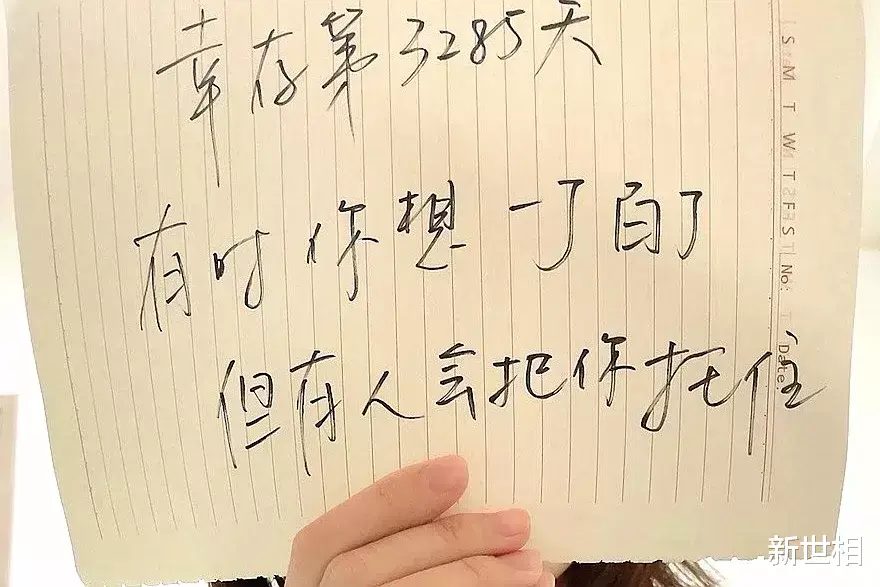 幸存第3285天
有时你想一了百了
但有人会把你托住
S M T W T F S
No:
Date:
新世相